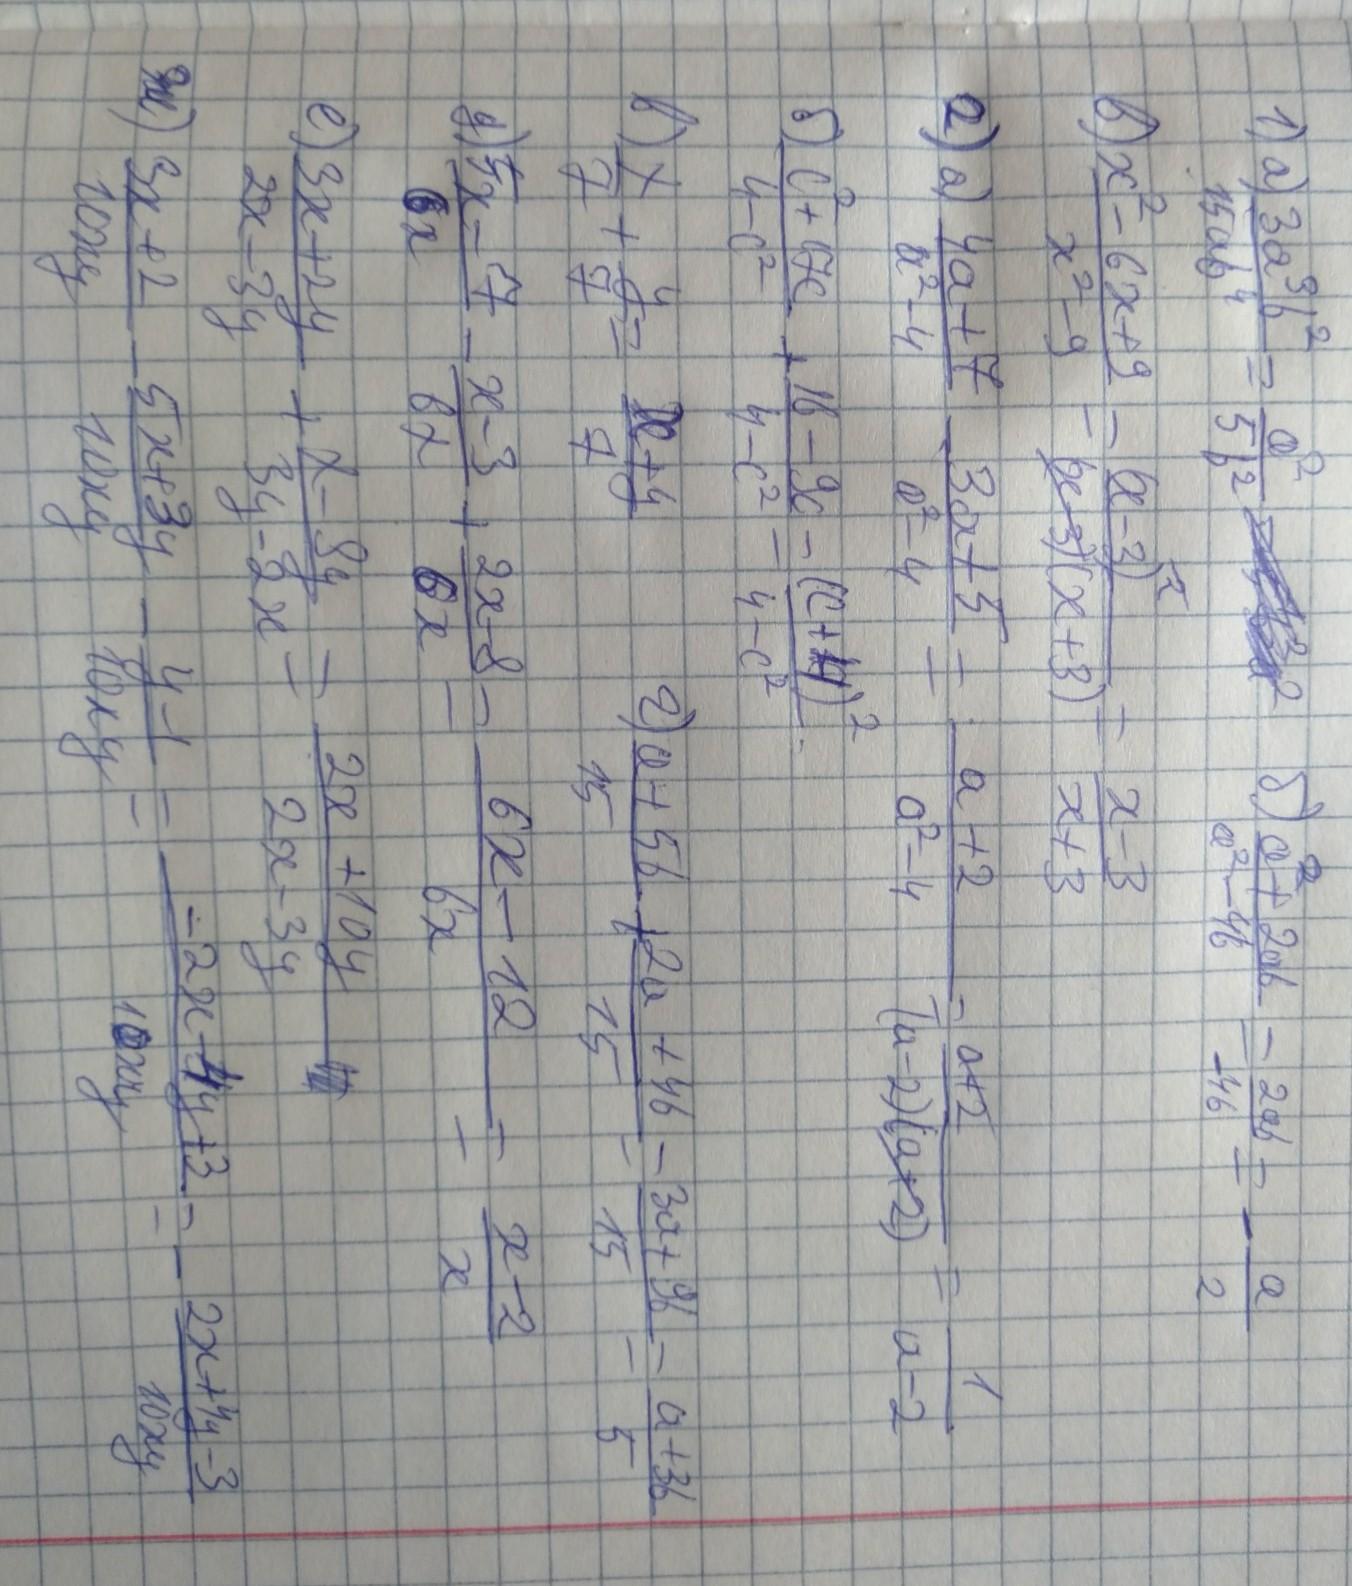 1) а) 3a³b² / 15ab⁴ = a² / 5b² б) a² + 2ab / a² - 4b = 2ab / -4b = - a / 2
в) x² - 6x + 9 / x² - 9 = (x-3)² / (x-3)(x+3) = x-3 / x+3
2) а) 4a+7 / a²-4 - 3a+5 / a²-4 = a+2 / a²-4 = a+2 / (a-2)(a+2) = 1 / a-2
б) c²+17c / 4-c² + 16-9c / 4-c² = (c+4)² / 4-c²
в) x / 7 + y / 7 = x+y / 7 г) a+5b / 15 + 2a+4b / 15 = 3a+9b / 15 = a+3b / 5
д) 5x-7 / 6x - x-3 / 6x + 2x-8 / 6x = 6x-12 / 6x = x-2 / x
е) 3x+2y / 2x-3y + x-8y / 3y-2x = 2x+10y / 2x-3y
ж) 3x+2 / 10xy - 5x+3y / 10xy - y-1 / 10xy = -2x-4y+3 / 10xy = - 2x+4y-3 / 10xy